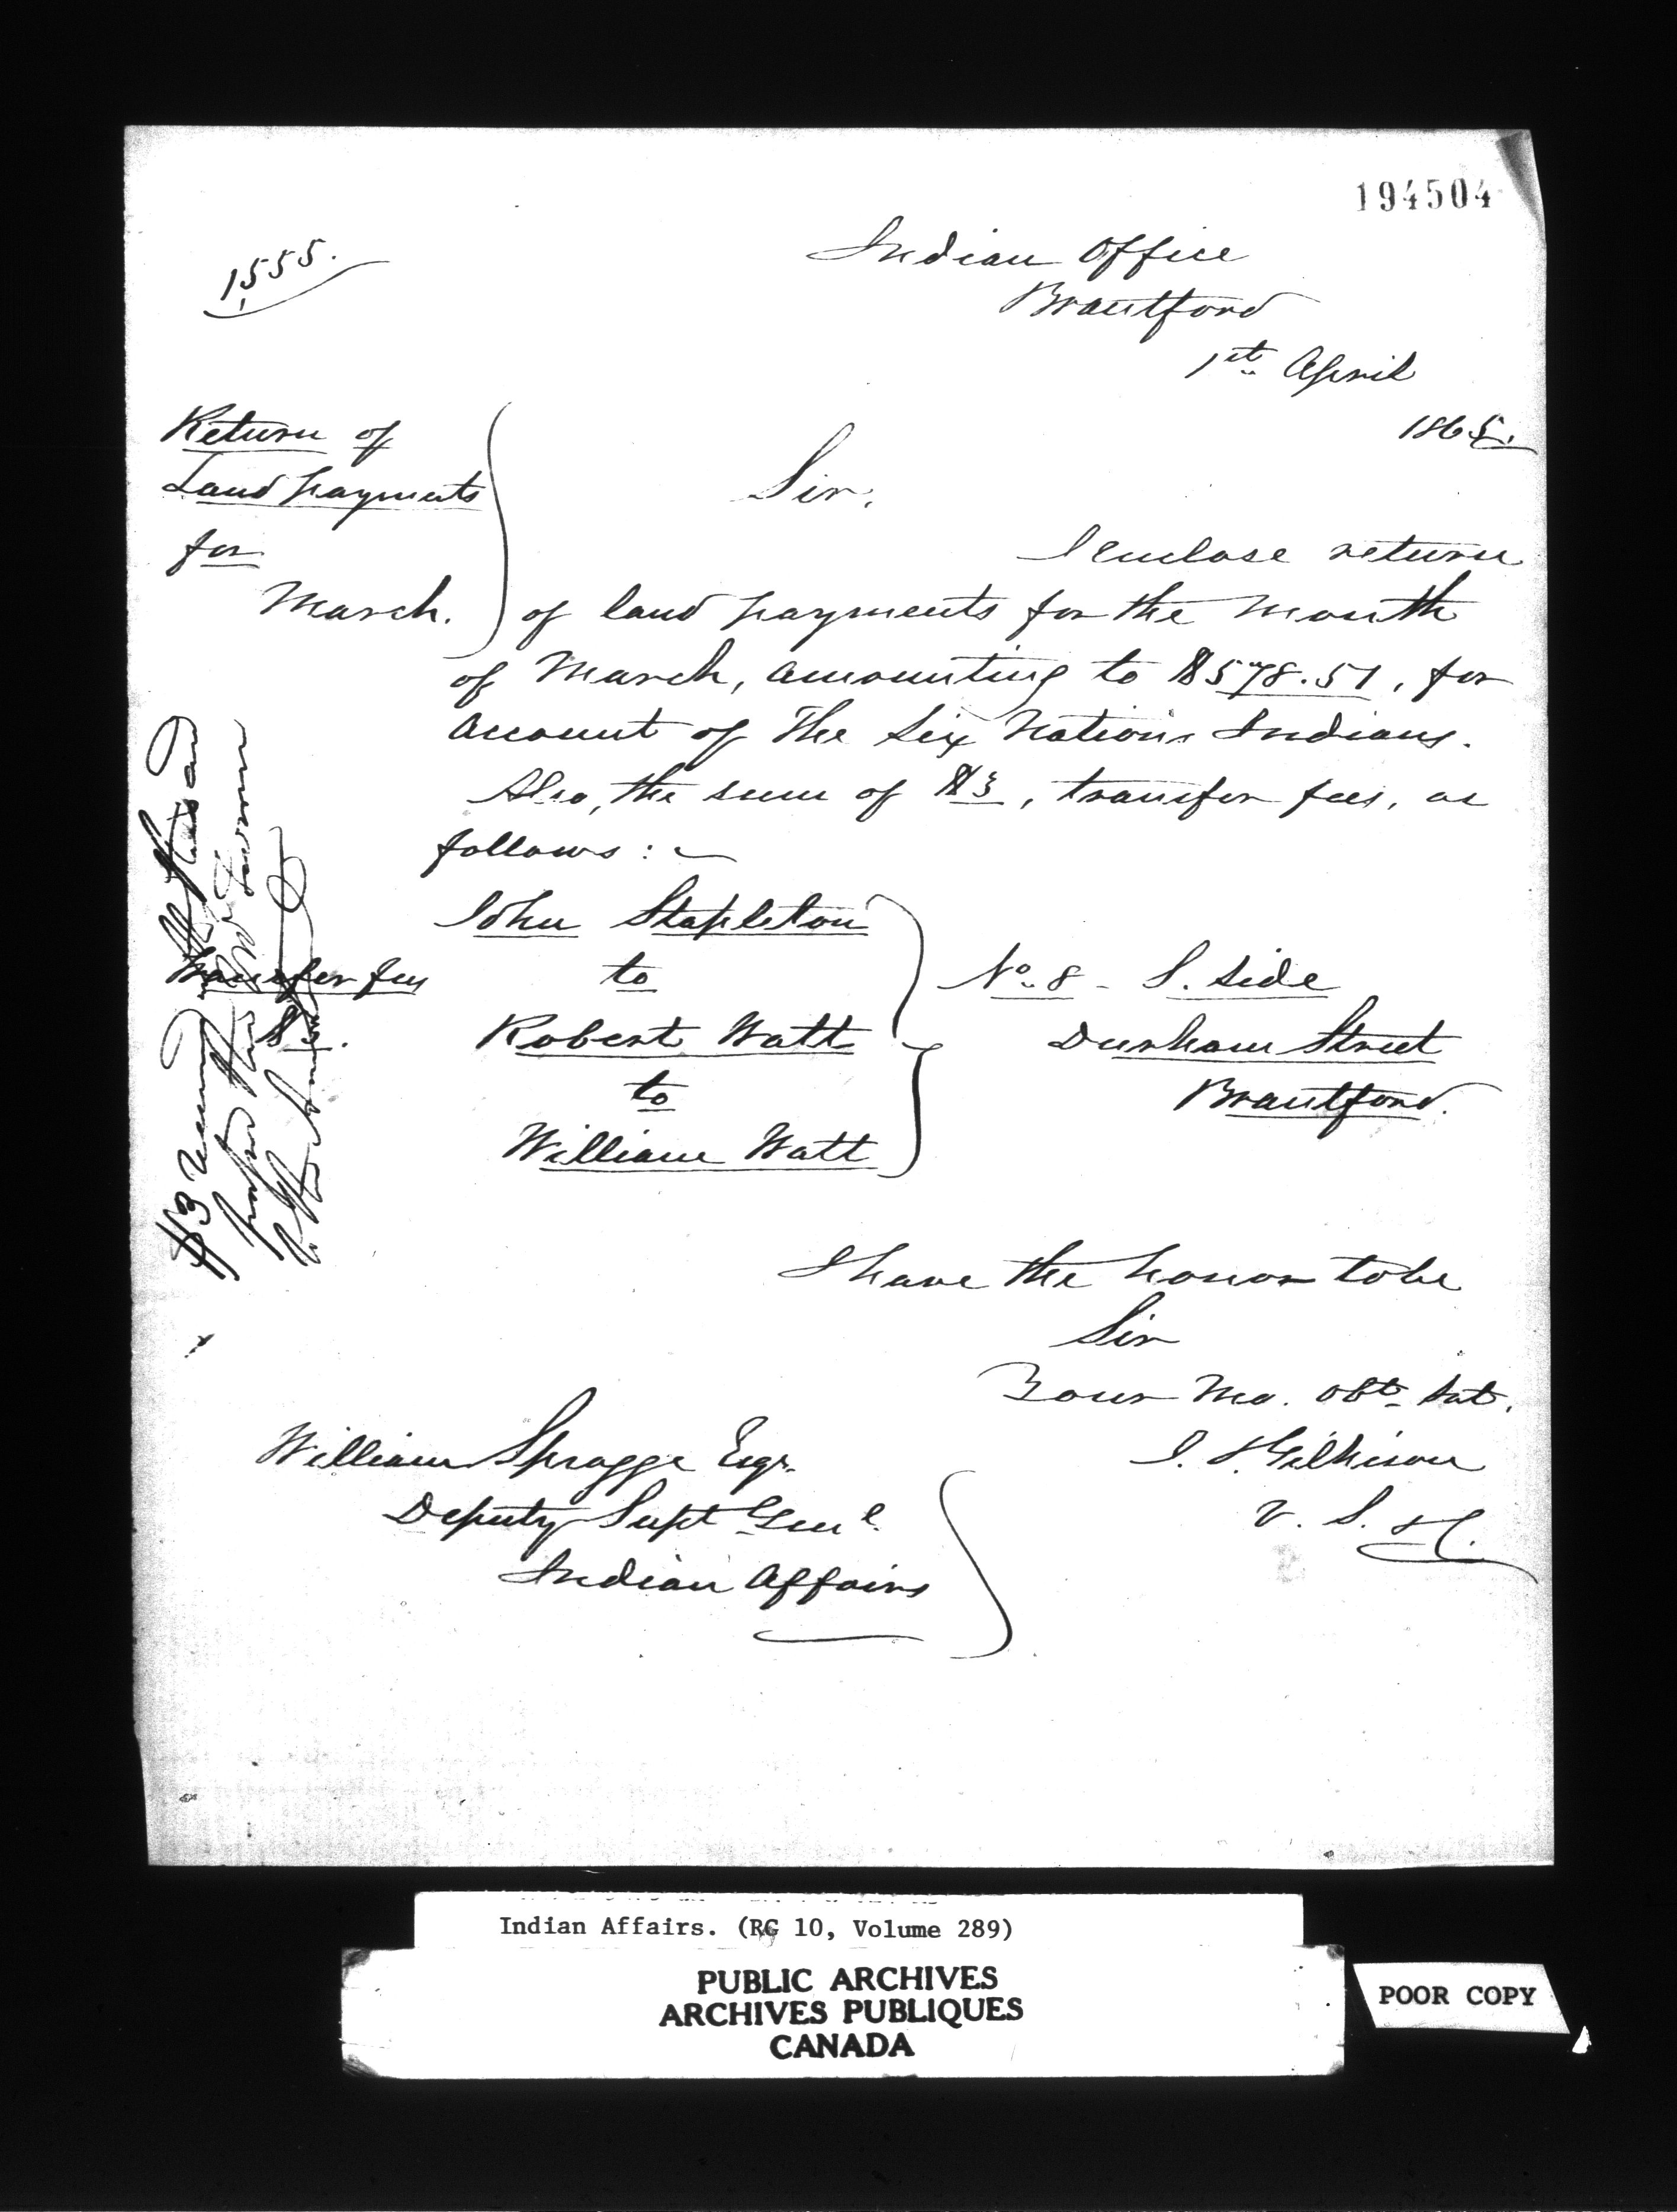 194504
1555.
Indian Office
Brantford
1st April
1865.
Return of
Land payments
for
March.
Sir.
I enclose return
of land payments for the month
of March, amounting to $578.51, for
account of The Six Nations Indians.
Also, the sum of $3, transfer fees, as
follows: -
John Stapleton
to
Robert Watt
to
William Watt
No. 8 - S. side
Durham Street
Brantford.
Transfer fees
$3.
$3
I have the honor to be
Sir
Your Mo. Obt. Svt.
J. T. Gilkison
V. S. &c.
William Spragge Esqr.
Deputy Supt Genl.
Indian Affairs
Indian Affairs. (RG 10, Volume 289)
PUBLIC ARCHIVES
ARCHIVES PUBLIQUES
CANADA
POOR COPY